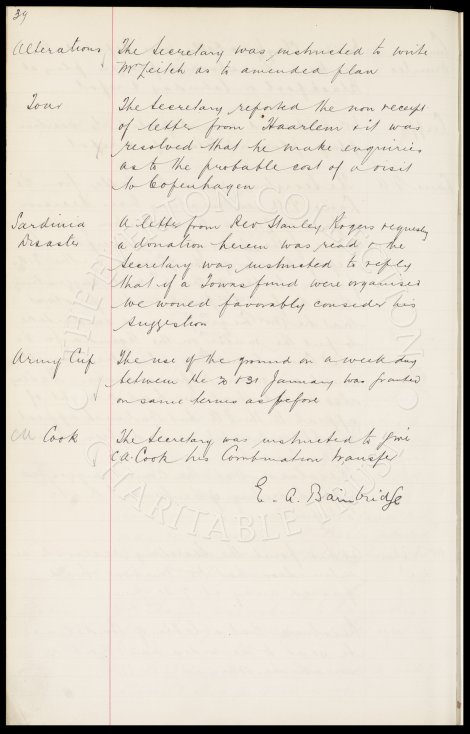 39
Alterations The Secretary was instructed to write
Mr Leitch as to amended plan
Tour The Secretary reported the non receipt
of letter from Haarlem & it was
resolved that he make enquiries
as to the probable cost of a visit
to Copenhagen
Sardinia A letter from Rev Stanley Rogers requesting
Disaster a donation herein was read & the
Secretary was instructed to reply
that if a Towns fund were organised
we would favorably consider his
suggestion
Army Cup The use of the ground on a week day
between the & 31 January was granted
on same terms as before
Cook The Secretary was instructed to give
Cook his Combination transfer
E. A. Bainbridge
THE EVERTON COLLECTION
CHARITABLE TRUST